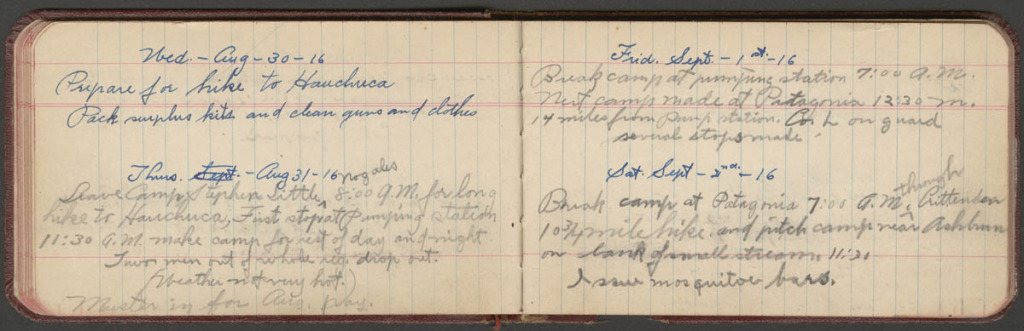 Wed. - Aug - 30 - 16
Prepare for hike to Hauchuca
Pack surplus kits and clean guns and clothes
Thurs. Sept. - Aug 31 - 16
Leave Camp Stephen Little, Nogales 8:00 A.M. for long
hike to Hauchuca, First stop at Pumping station
11:30 A.M. make camp for rest of day and night
Two men out of whole reg. drop out.
(Weather not very hot.)
Muster in for Aug. pay.
Frid. Sept. - 1st. - 16
Break camp at pumping station 7:00 A.M.
Next camp made at Patagonia 12:30 m.
14 miles from pump station. Co. L on guard
several stops made.
Sat. Sept - 2nd. - 16
Break camp at Patagonia 7:00 A.M. through Crittenden
10 3/4 mile hike and pitch camp near Ashburn
on bank of small stream 11:30
Issue mosquitoe bars.